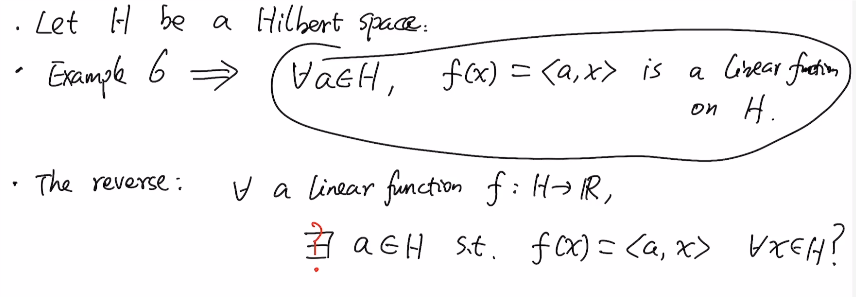 · Let H be a Hilbert space.
· Example 6 ⟹ ∀a∈H, f(x) = <a,x> is a linear function
on H.
· The reverse: ∀ a linear function f: H→ℝ,
?
∃ a∈H s.t. f(x) = <a,x> ∀x∈H?